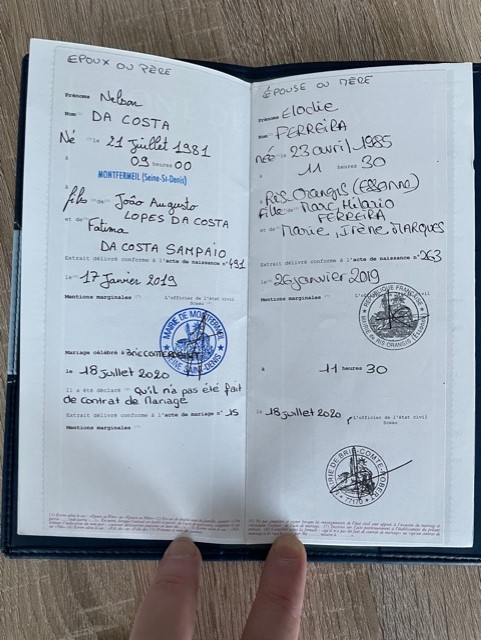 EPOUX OU PÈRE
Prénoms Nelson
Nom DA COSTA
Né le 21 juillet 1981
à 09 heures 00
MONTFERMEIL (Seine-St-Denis)
fils de João Augusto
LOPES DA COSTA
et de Fatima
DA COSTA SAMPAIO
Extrait délivré conforme à l'acte de naissance n° 491
le 17 Janvier 2019
Mentions marginales L'officier de l'état civil
Sceau
MAIRIE DE MONTFERMEIL
SEINE SAINT-DENIS
Mariage célébré à BRIE COMTE ROBERT
le 18 juillet 2020
Il a été déclaré qu'il n'a pas été fait
de contrat de Mariage
Extrait délivré conforme à l'acte de mariage n° 15
Mentions marginales
ÉPOUSE OU MÈRE
Prénoms Elodie
Nom FERREIRA
Née le 23 avril 1985
à 11 30
à RIS ORANGIS (Essonne)
Fille de Marc, Hilario
FERREIRA
et de Marie, Irène MARQUES
Extrait délivré conforme à l'acte de naissance n° 263
le 26 janvier 2019
Mentions marginales
RÉPUBLIQUE FRANÇAISE
MAIRIE de RIS ORANGIS (Essonne)
à 11 heures 30
le 18 juillet 2020 L'officier de l'état civil
Sceau
MAIRIE DE BRIE-COMTE-ROBERT
77170